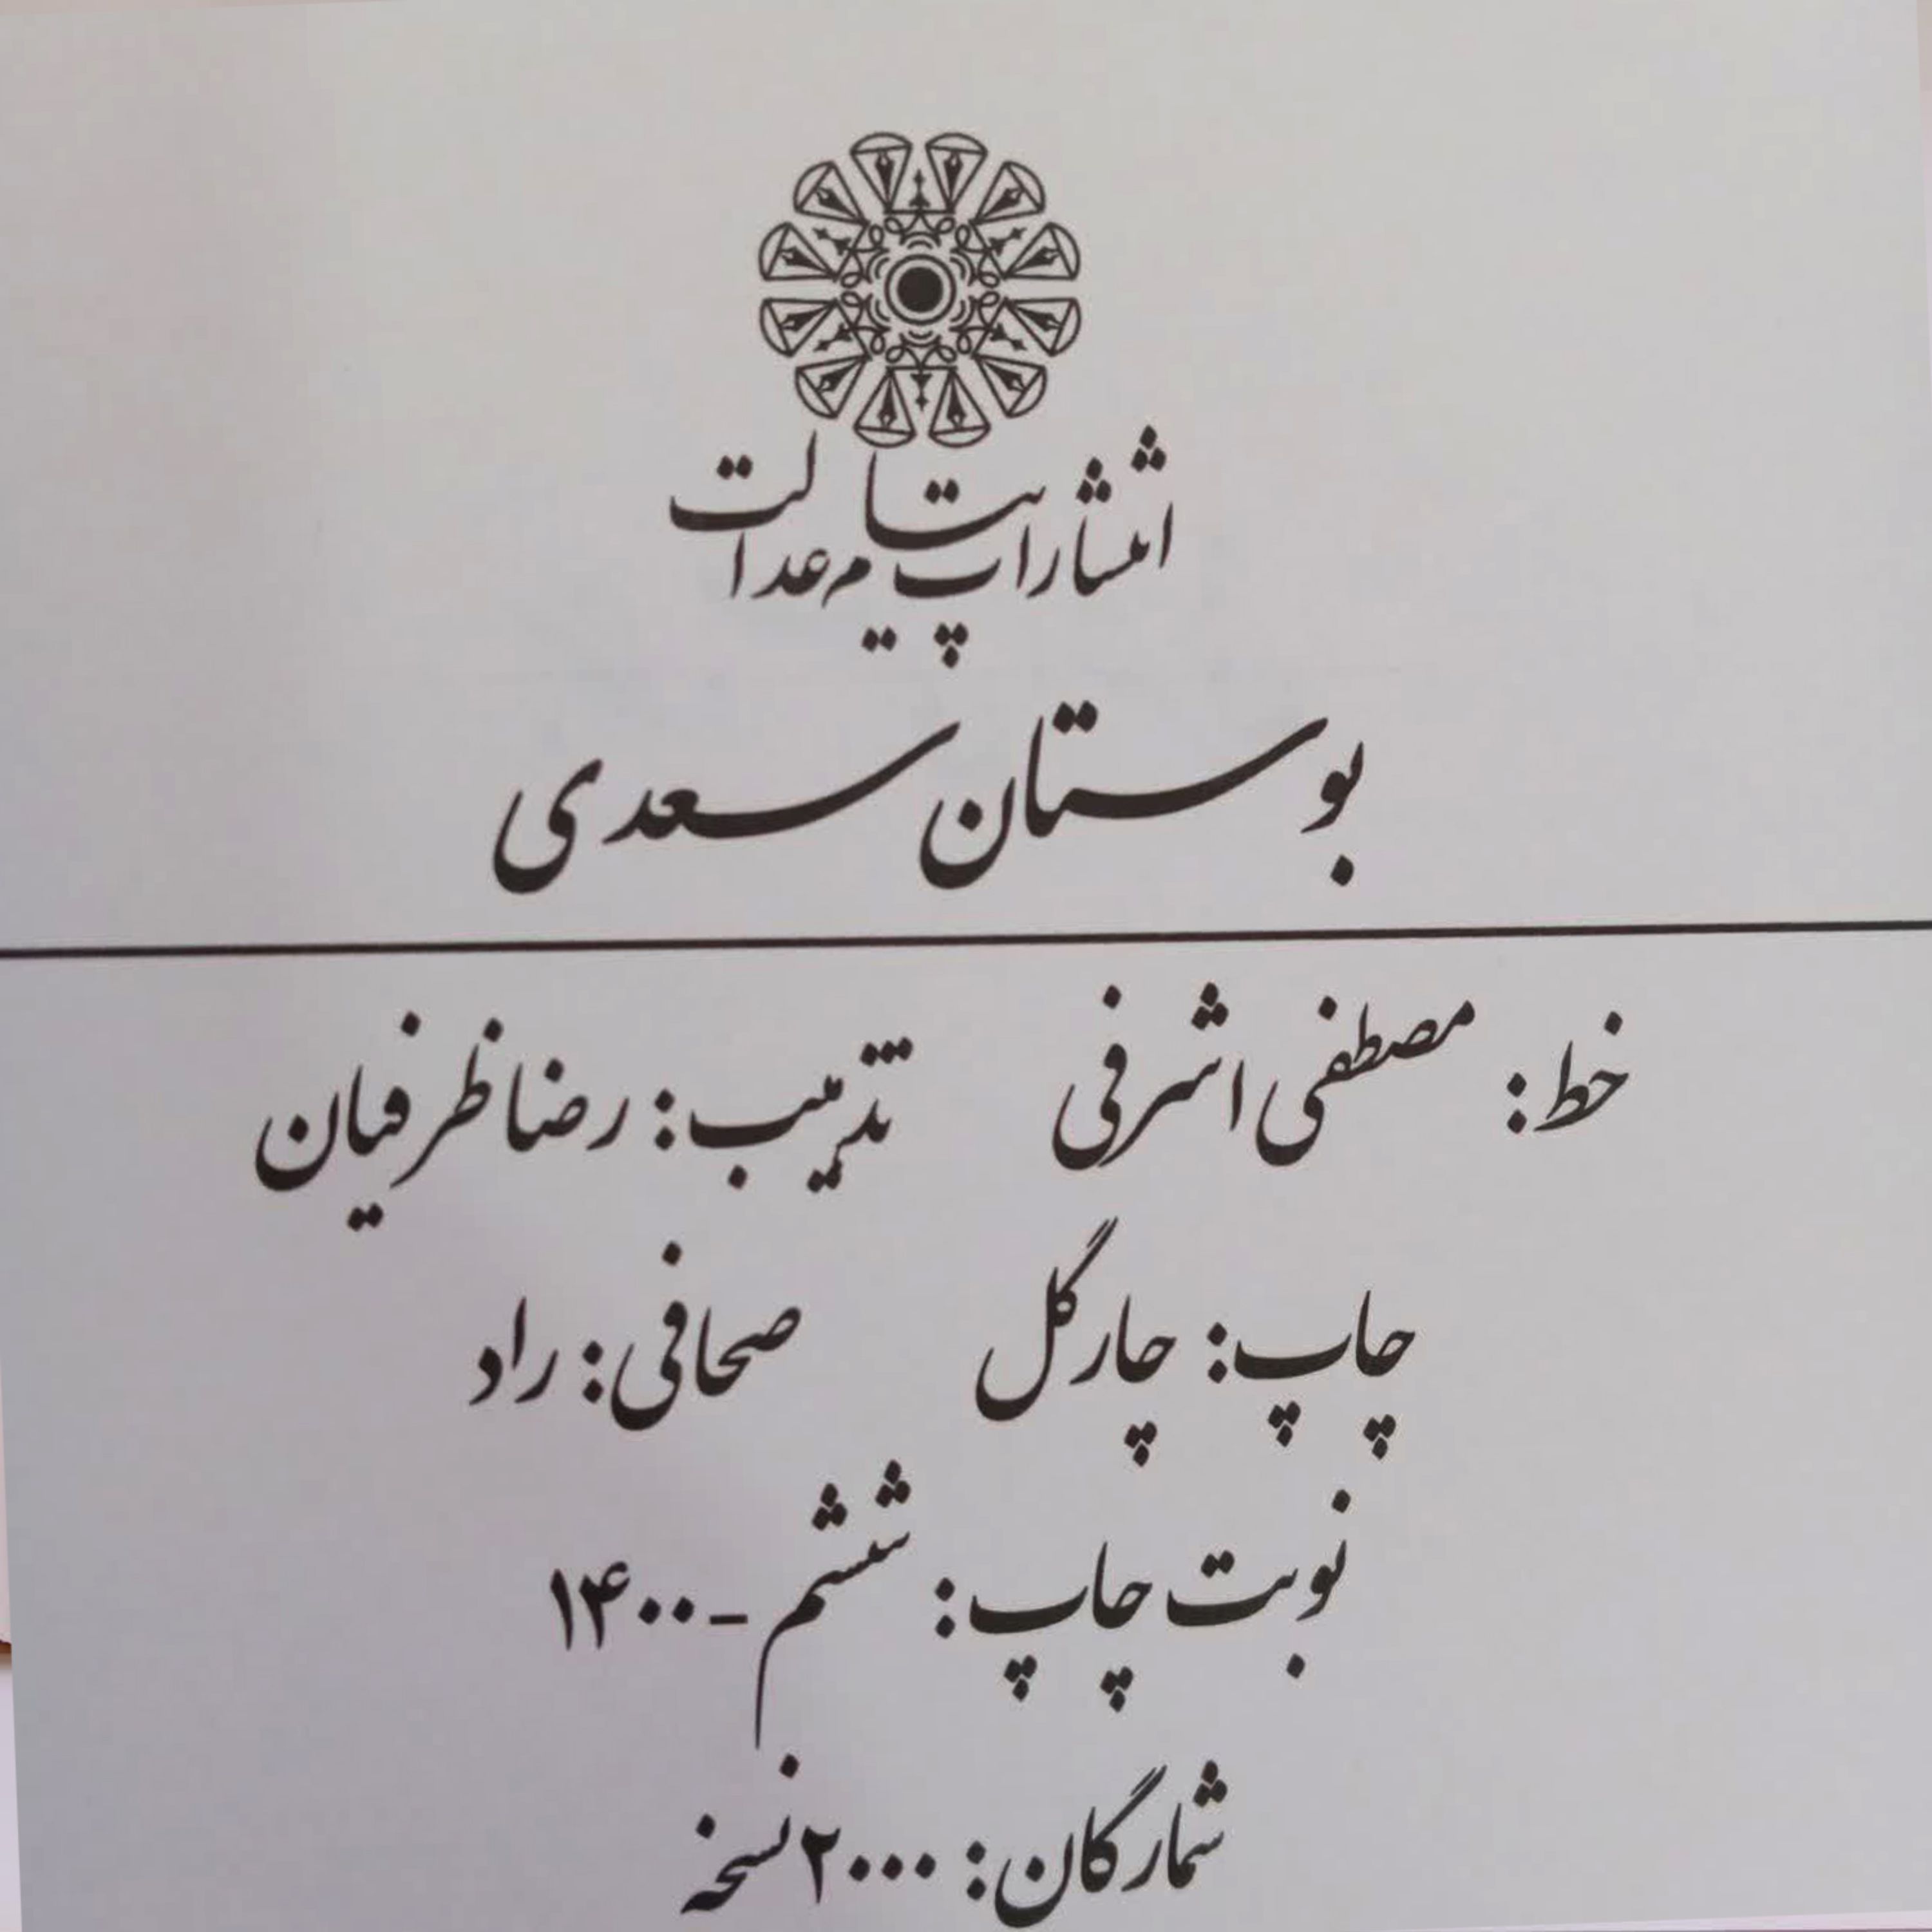 انتشارات پیام عدالت
بوستان سعدی
خط: مصطفی اشرفی تذهیب: رضا ظرفیان
چاپ: چارگل صحافی: راد
نوبت چاپ: ششم - ۱۴۰۰
شمارگان: ۲۰۰۰ نسخه